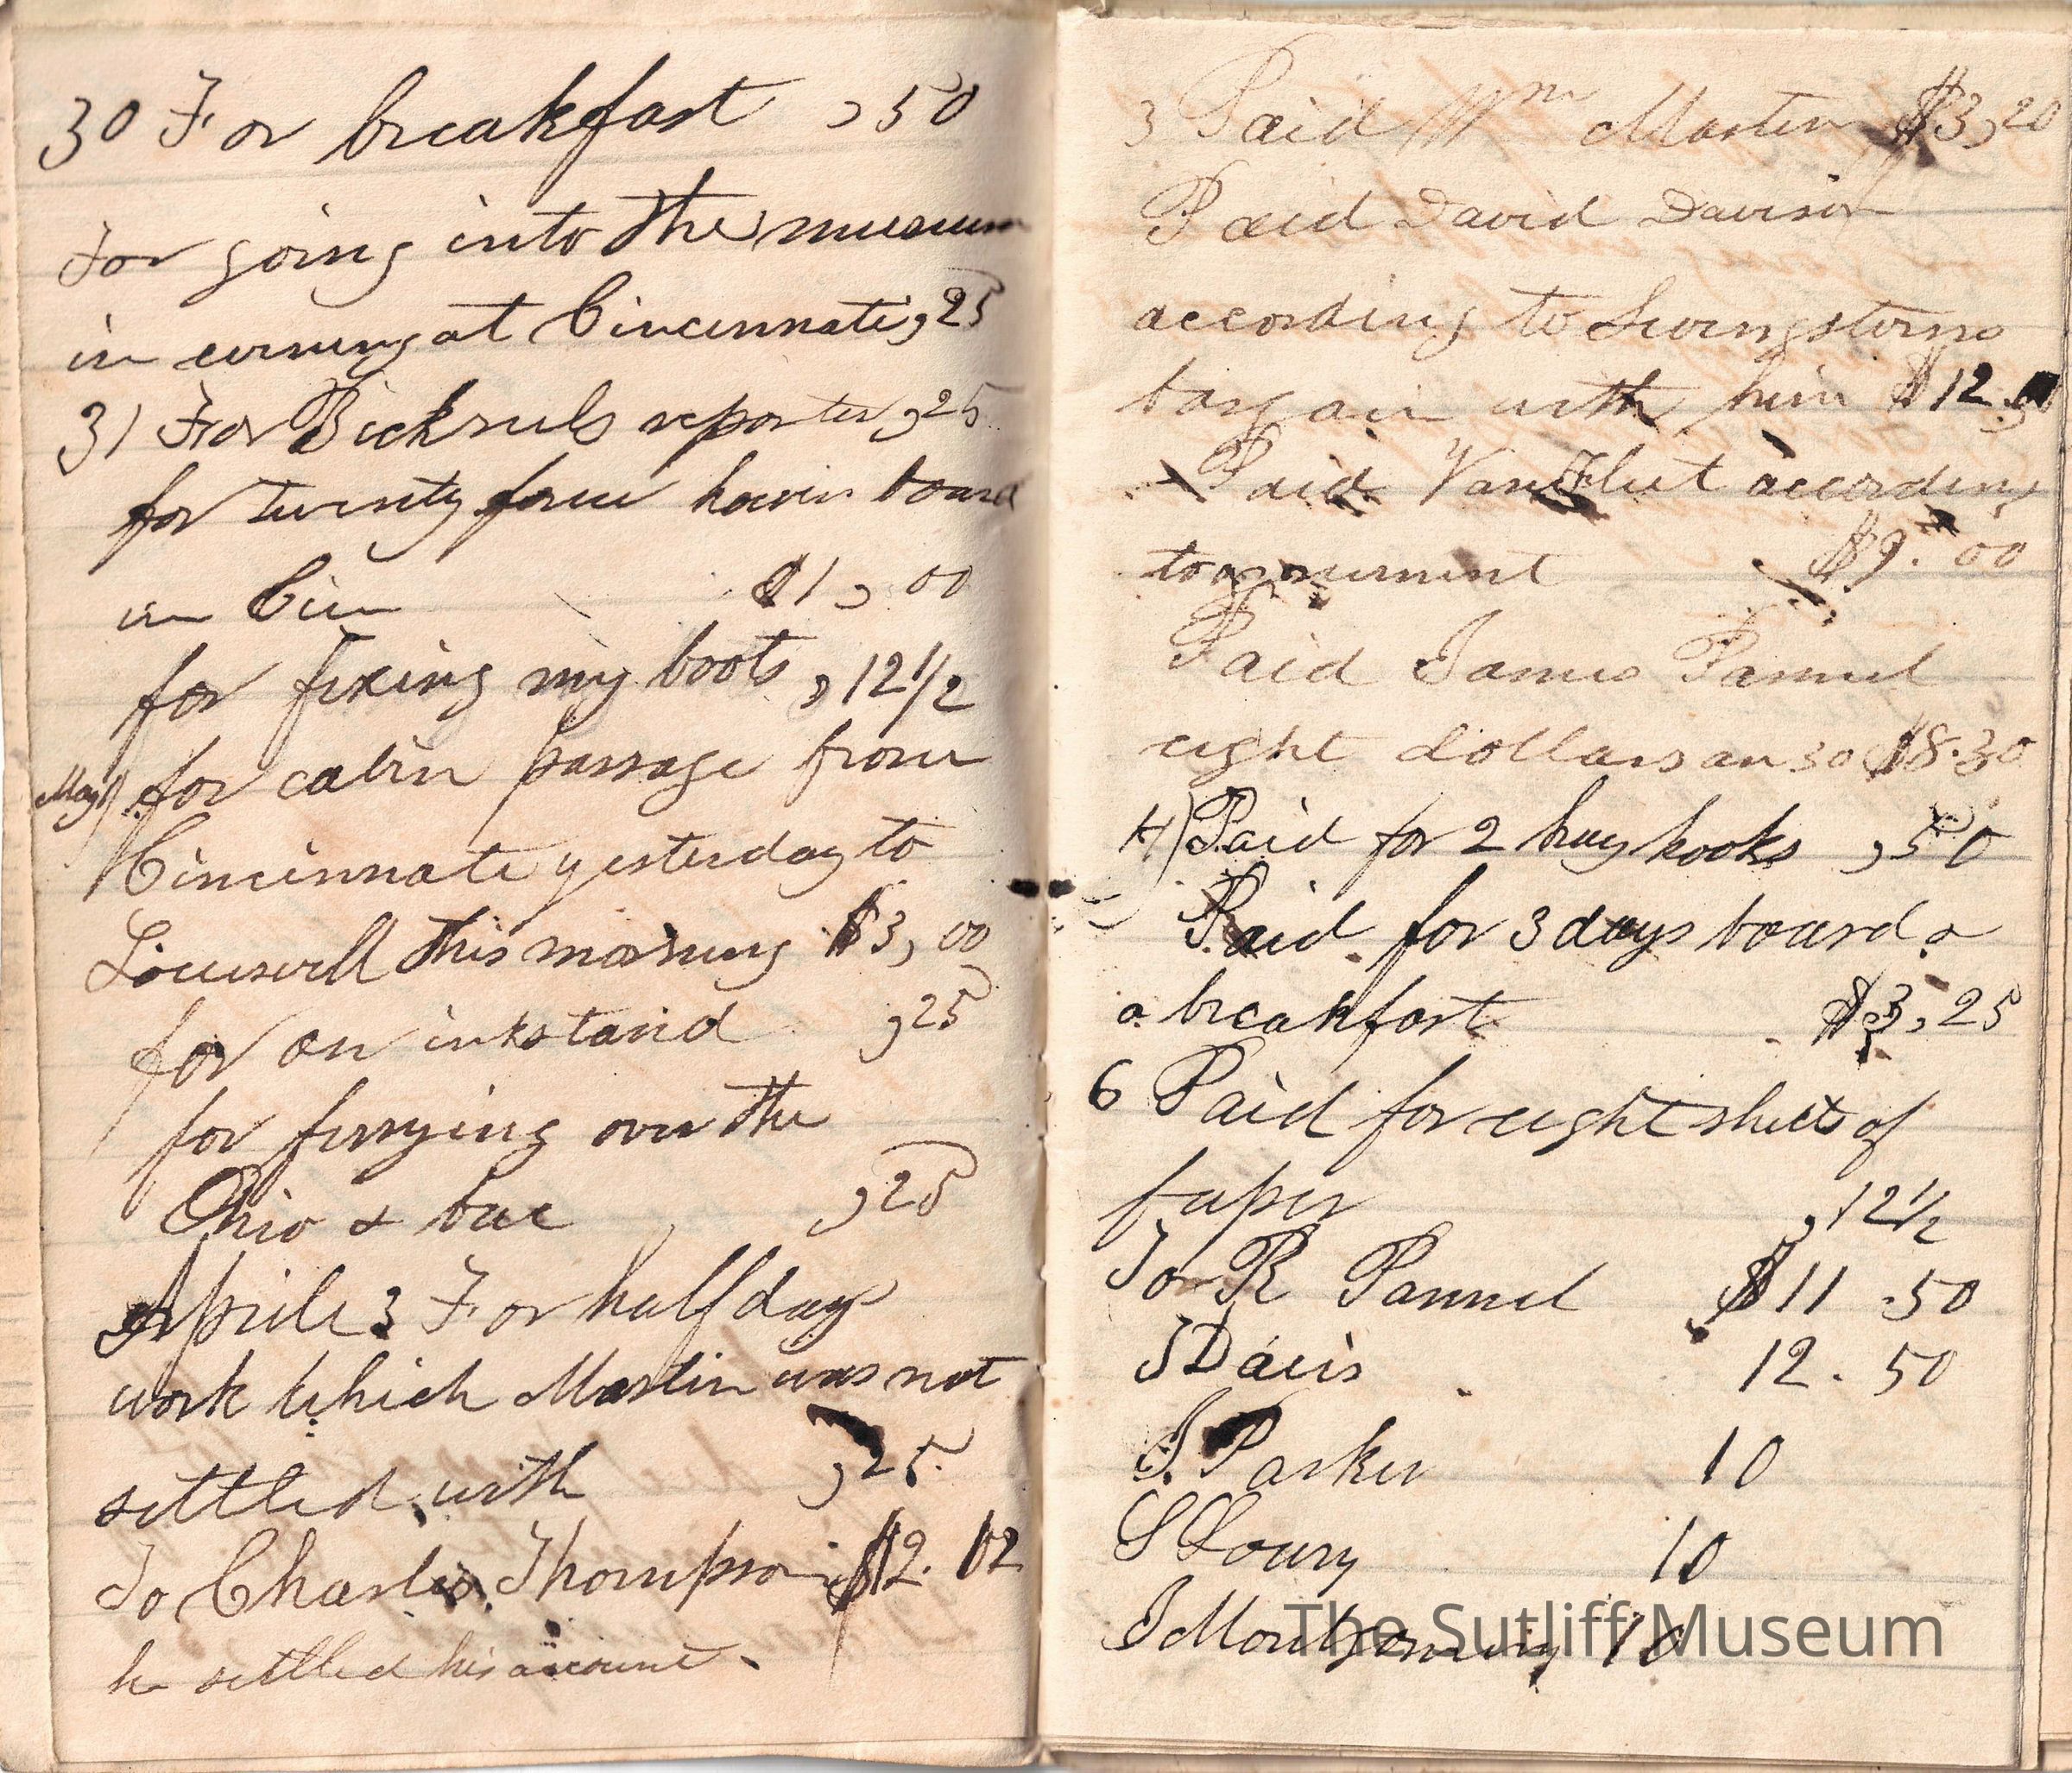 30 For breakfast ,50
For going into the museum
in evening at Cincinnati ,25
31 For Bicknels reporter ,25
for twenty four hours board
in Cin $1,00
for fixing my boots ,12 1/2
May 1) for cabin passage from
Cincinnate yesterday to
Louisvill this morning $3,00
for an inkstand ,25
for ferrying over the
Ohio & bac ,25
Aprile 3 For half day
work which Martin was not
settled with ,25
To Charles Thompson $2.02
he settled his account.
3 Paid Wm Martin $3,20
Paid David Davison
according to Livingstons
bargain with him $12.
Paid VanFleet according
to agreement $9.00
Paid James Pannel
eight dollars an 30 $8.30
4) Paid for 2 hay hooks ,50
Paid for 3 days board &
a breakfast $3,25
6 Paid for eight sheets of
paper ,12 1/2
For R Pannel $11.50
J Davis 12.50
J. Parker 10
S Loury 10
J Montgomery 10
The Sutliff Museum